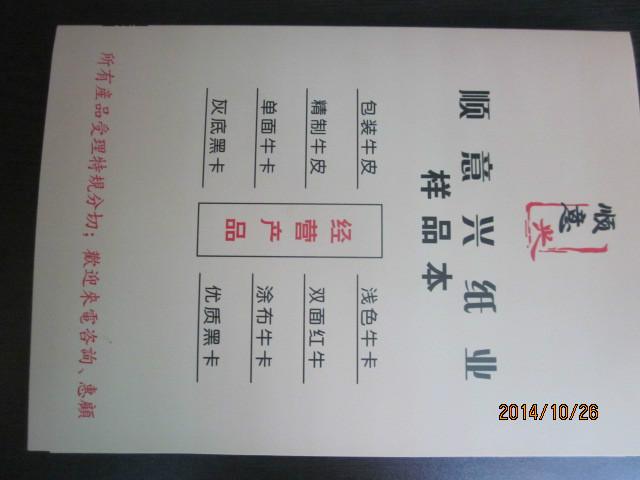 顺意兴
顺意兴纸业
样品本
经营产品
包装牛皮
精制牛皮
单面牛卡
灰底黑卡
浅色牛卡
双面红牛
涂布牛卡
优质黑卡
所有産品受理特規分切；歡迎來電咨詢、惠顧
2014/10/26